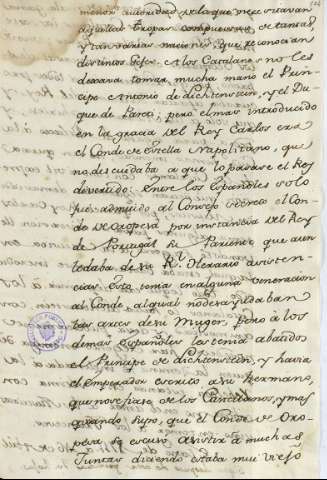 menor autoridad se la que necesitavan
aquellas Tropas compuestas de tantas,
y tan varias naciones, que reconocian
distintos Gefes. A los Catalanes no les
dexava tomar mucha mano el Prin-
cipe Antonio de Lichtenstein, y el Du-
que de Parci, pero el mas introducido
en la gracia del Rey Carlos era
el Conde de Estella Napolitano, que
no descuidaba a que lo pasase el Rey
divertido: entre los Españoles solo
fue admitido al Consejo Secreto el Con-
de de Oropesa por instancia del Rey
de Portugal su Pariente que aun
le daba de su Rl. Herario asisten-
cias. Esto tenia en alguna veneracion
al Conde, al qual no dexaban
las artes de su Muger, pero a los
demas Españoles los tenia abatidos
el Principe de Lichtenstein, y havia
el Emperador escrito a su hermano,
que no se fiase de los Castellanos, y mas
quando supo, que el Conde de Oro-
pesa se escusó asistir a muchas
Juntas diciendo estaba muy viejo